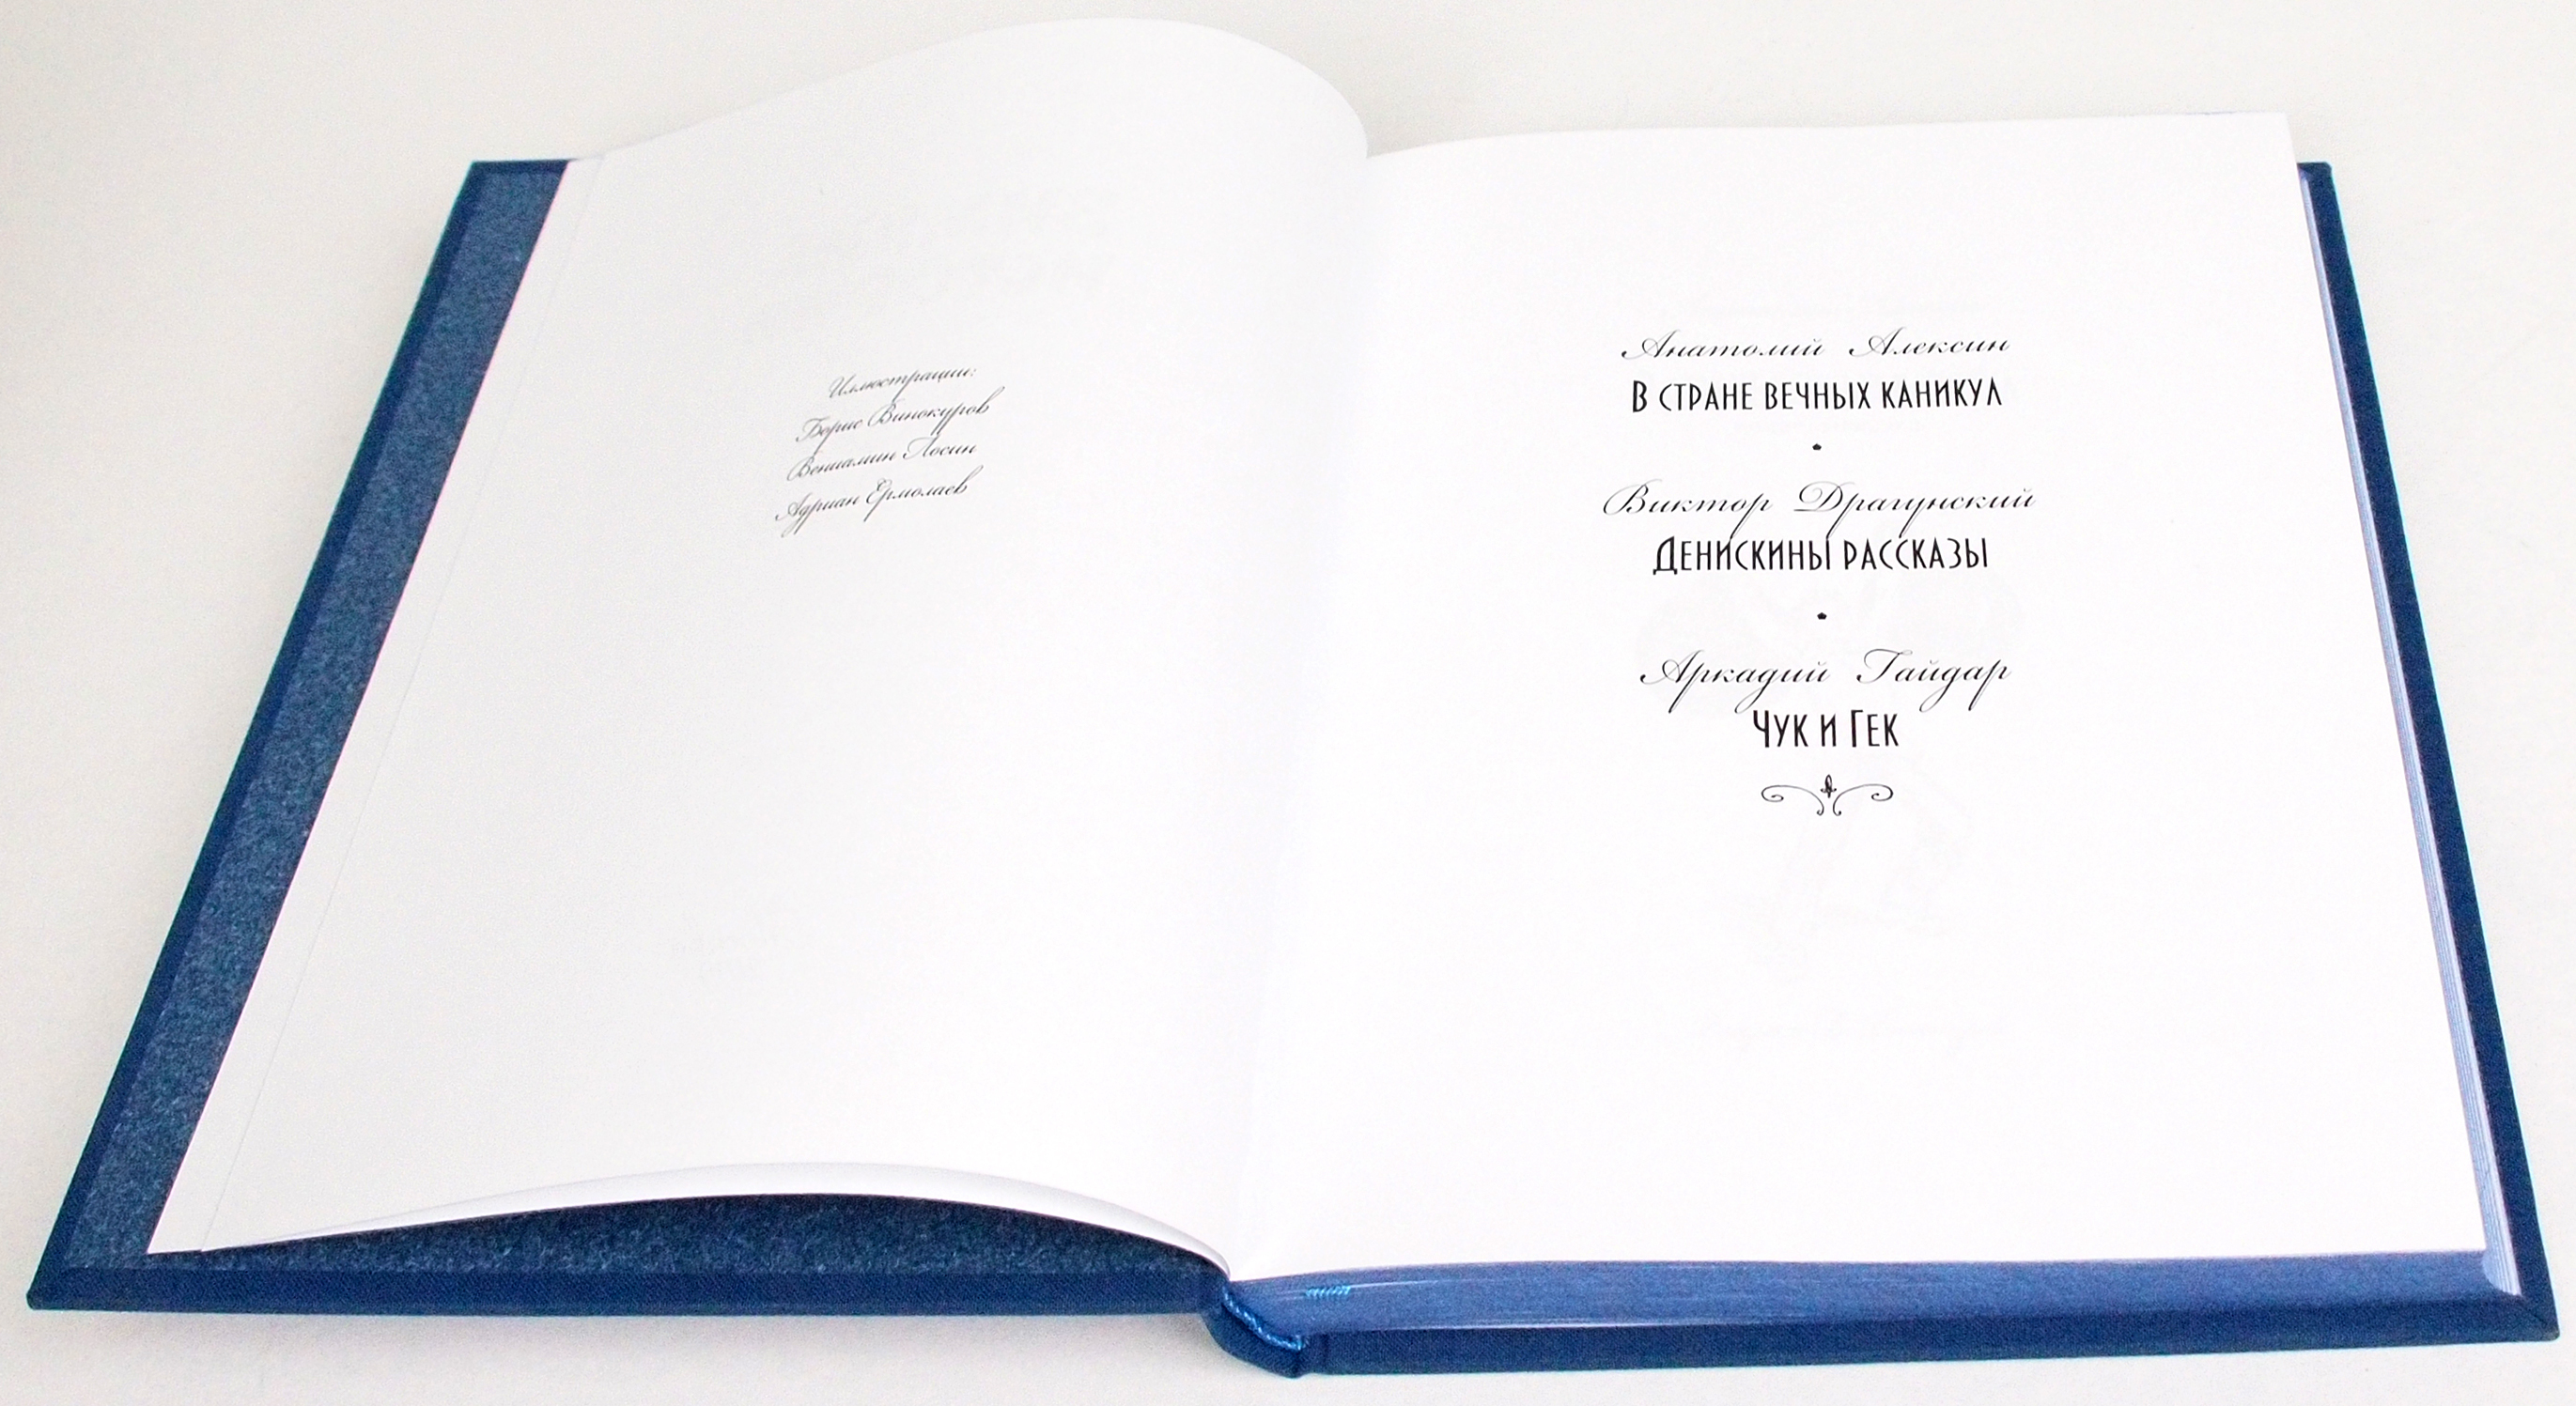 Иллюстрации:
Борис Винокуров
Вениамин Лосин
Адриан Ермолаев
Анатолий Алексин
В СТРАНЕ ВЕЧНЫХ КАНИКУЛ
Виктор Драгунский
ДЕНИСКИНЫ РАССКАЗЫ
Аркадий Гайдар
ЧУК И ГЕК